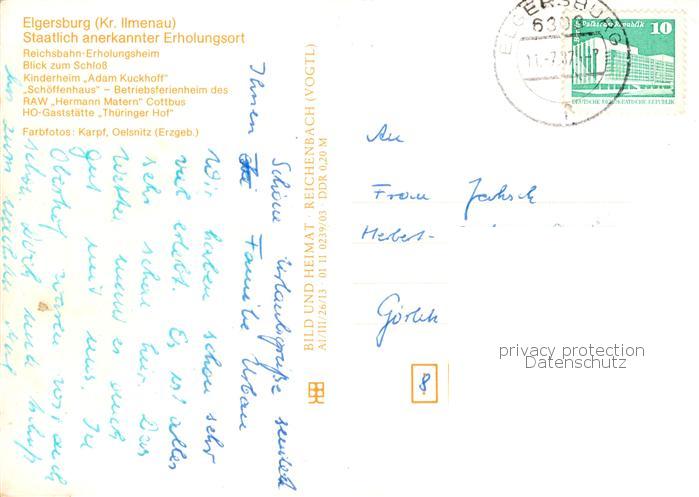 Elgersburg (Kr. Ilmenau)
Staatlich anerkannter Erholungsort
Reichsbahn-Erholungsheim
Blick zum Schloß
Kinderheim „Adam Kuckhoff"
„Schöffenhaus" – Betriebsferienheim des
RAW „Hermann Matern" Cottbus
HO-Gaststätte „Thüringer Hof"
Farbfotos: Karpf, Oelsnitz (Erzgeb.)
Schöne Urlaubsgrüße sendet
Ihnen Familie Urban
Wir haben schon sehr
viel erlebt. Es ist alles
sehr schön hier. Das
Wetter meint es auch
gut mit uns. In
Oberhof waren wir auch
schon. Doch nun
zum
BILD UND HEIMAT · REICHENBACH (VOGTL)
A1/III/26/13 01 11 0239/03 DDR 0,20 M
ELGERSBURG
10
DEUTSCHE DEMOKRATISCHE REPUBLIK
An
Frau
Herbert-
Görlitz
8
privacy protection
Datenschutz